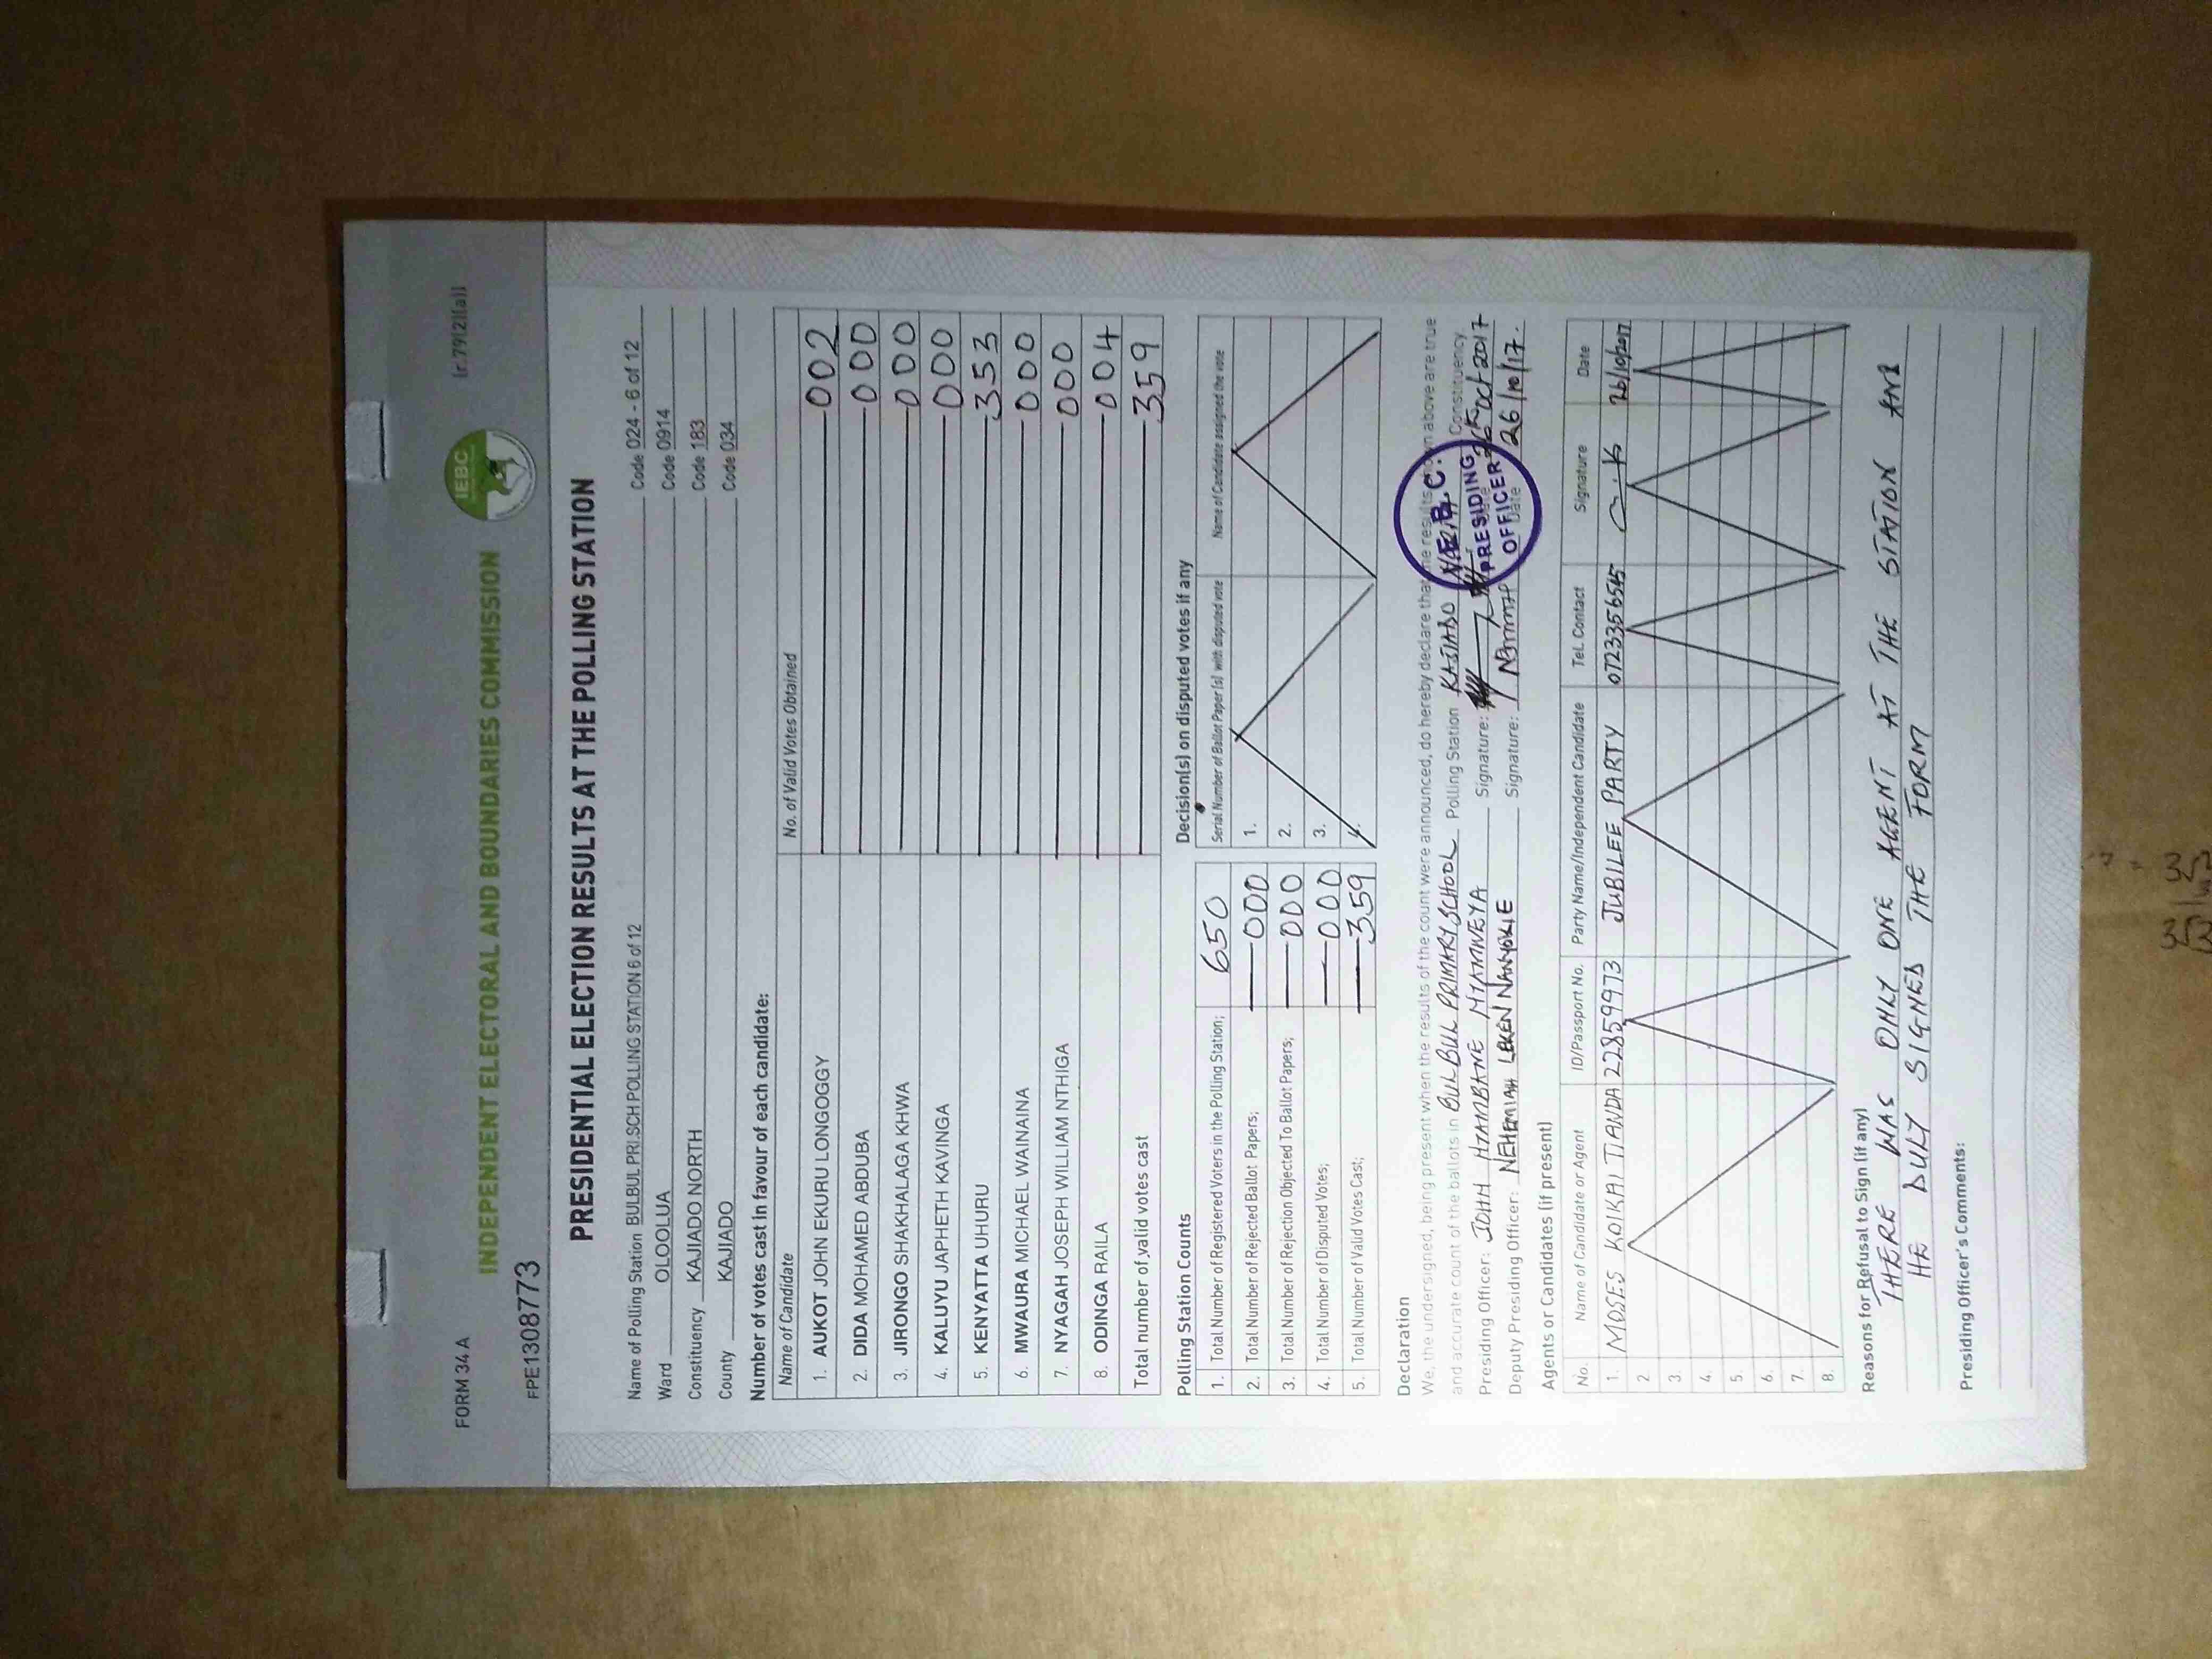 FORM 34 A
(r.79(2)(a))
IEBC
INDEPENDENT ELECTORAL AND BOUNDARIES COMMISSION
FPE1308773
PRESIDENTIAL ELECTION RESULTS AT THE POLLING STATION
Name of Polling Station BULBUL PRI.SCH POLLING STATION 6 of 12 Code 024 - 6 of 12
Ward OLOOLUA Code 0914
Constituency KAJIADO NORTH Code 183
County KAJIADO Code 034
Number of votes cast in favour of each candidate:
Name of Candidate No. of Valid Votes Obtained
1. AUKOT JOHN EKURU LONGOGGY 002
2. DIDA MOHAMED ABDUBA 000
3. JIRONGO SHAKHALAGA KHWA 000
4. KALUYU JAPHETH KAVINGA 000
5. KENYATTA UHURU 353
6. MWAURA MICHAEL WAINAINA 000
7. NYAGAH JOSEPH WILLIAM NTHIGA 000
8. ODINGA RAILA 004
Total number of valid votes cast 359
Polling Station Counts
1. Total Number of Registered Voters in the Polling Station; 650
2. Total Number of Rejected Ballot Papers; 000
3. Total Number of Rejection Objected To Ballot Papers; 000
4. Total Number of Disputed Votes; 000
5. Total Number of Valid Votes Cast; 359
Decision(s) on disputed votes if any
Serial Number of Ballot Paper (s) with disputed vote Name of Candidate assigned the vote
1.
2.
3.
4.
Declaration
We, the undersigned, being present when the results of the count were announced, do hereby declare that the results shown above are true
and accurate count of the ballots in BULBUL PRIMARY SCHOOL Polling Station KAJIADO Constituency
Presiding Officer: JOHN Signature: Oct 2017
Deputy Presiding Officer: NEHEMIAH LEKEN NANYOKIE Signature: Date 26/10/17.
I.E.B.C.
PRESIDING
OFFICER
Agents or Candidates (if present)
No. Name of Candidate or Agent ID/Passport No. Party Name/Independent Candidate Tel. Contact Signature Date
1. MOSES KOIKAI TIANDA 22859973 JUBILEE PARTY 26/10/2017
2.
3.
4.
5.
6.
7.
8.
Reasons for Refusal to Sign (if any)
THERE WAS ONLY ONE AGENT AT THE STATION AND
HE DULY SIGNED THE FORM
Presiding Officer's Comments: